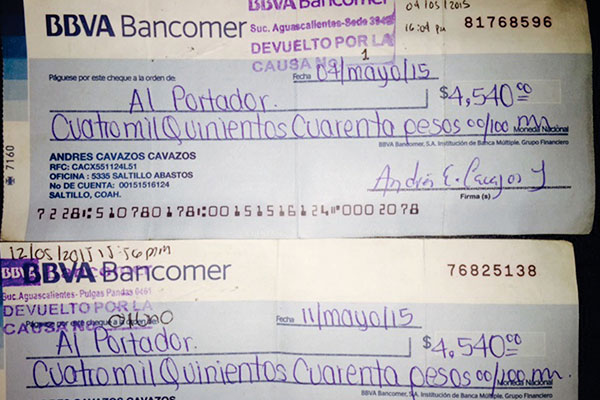 BBVA Bancomer
Suc. Aguascalientes-Sede
DEVUELTO POR LA
CAUSA No. 1
04/05/2015
16:04 pm
81768596
Páguese por este cheque a la orden de:
Fecha 04/mayo/15
Al Portador.
$4,540.00
Cuatro mil Quinientos Cuarenta pesos 00/100 mn.
Moneda Nacional
BBVA Bancomer, S.A. Institución de Banca Múltiple, Grupo Financiero
7160
ANDRES CAVAZOS CAVAZOS
RFC: CACX551124L51
OFICINA : 5335 SALTILLO ABASTOS
No DE CUENTA: 00151516124
SALTILLO, COAH.
Firma (s)
7228 51078017800151516124 0002078
12/05/2015
BBVA Bancomer
Suc. Aguascalientes- Pulgas Pandas 0461
DEVUELTO POR LA
CAUSA No.
76825138
Páguese por este cheque a la orden de:
Fecha 11/mayo/15
Al Portador.
$4,540.00
Cuatro mil Quinientos Cuarenta pesos 00/100 mn.
Moneda Nacional
BBVA Bancomer, S.A. Institución de Banca Múltiple, Grupo Financiero
ANDRES CAVAZOS CAVAZOS